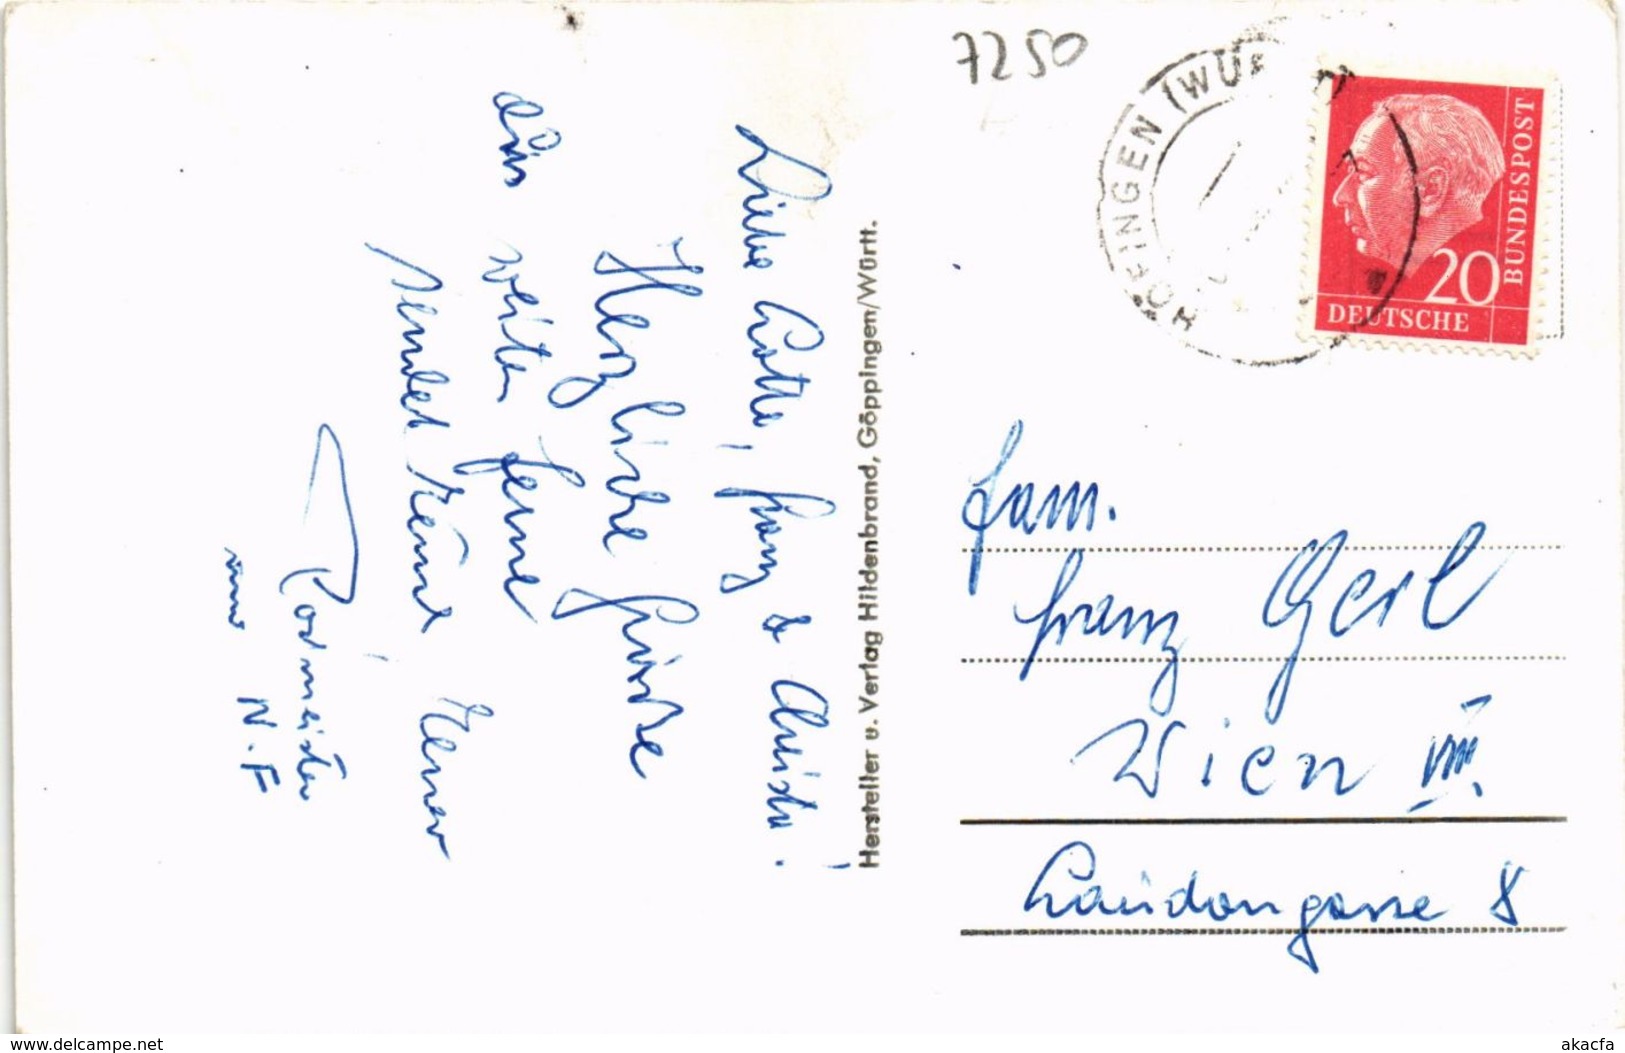 7250
HÖFINGEN (WÜR
20
DEUTSCHE
BUNDESPOST
Liebe Lotte, Franz & Christa!
Herzliche Grüsse
aus weiter Ferne
sendet Euch
Rodmeister
von N.F
Hersteller u. Verlag Hildenbrand, Göppingen/Württ.
Fam.
Franz Gerl
Wien VIII.
Laudongasse 8
www.delcampe.net
akacfa